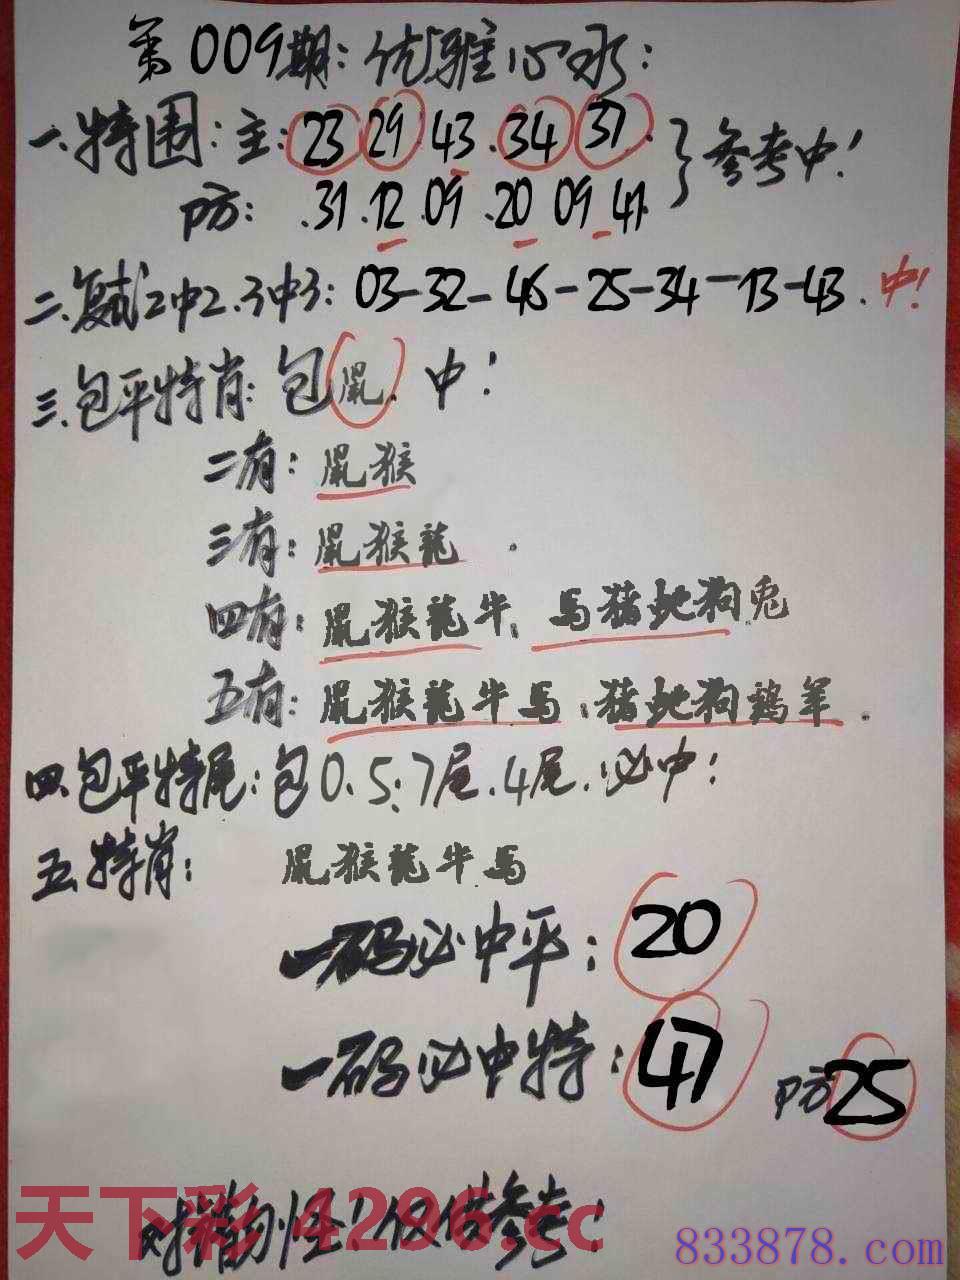 第009期:优雅心水:
一.特围:主:23 29 43.34 37.}参考中!
防:.31.12.09.20 09.41.
二.复试2中2.3中3:03-32-46-25-34-13-43.中!
三.包平特肖:包鼠.中!
二有:鼠猴
三有:鼠猴龍.
四有:鼠猴龍牛.馬猪蛇狗兎
五有:鼠猴龍牛馬.猪蛇狗鷄羊.
四.包平特尾:包0.5.7尾.4尾.必中!
五.特肖:鼠猴龍牛馬
一码必中平:20
一码必中特:47 防25
错勿怪!仅供参考!
天下彩 4296.cc
833878.com